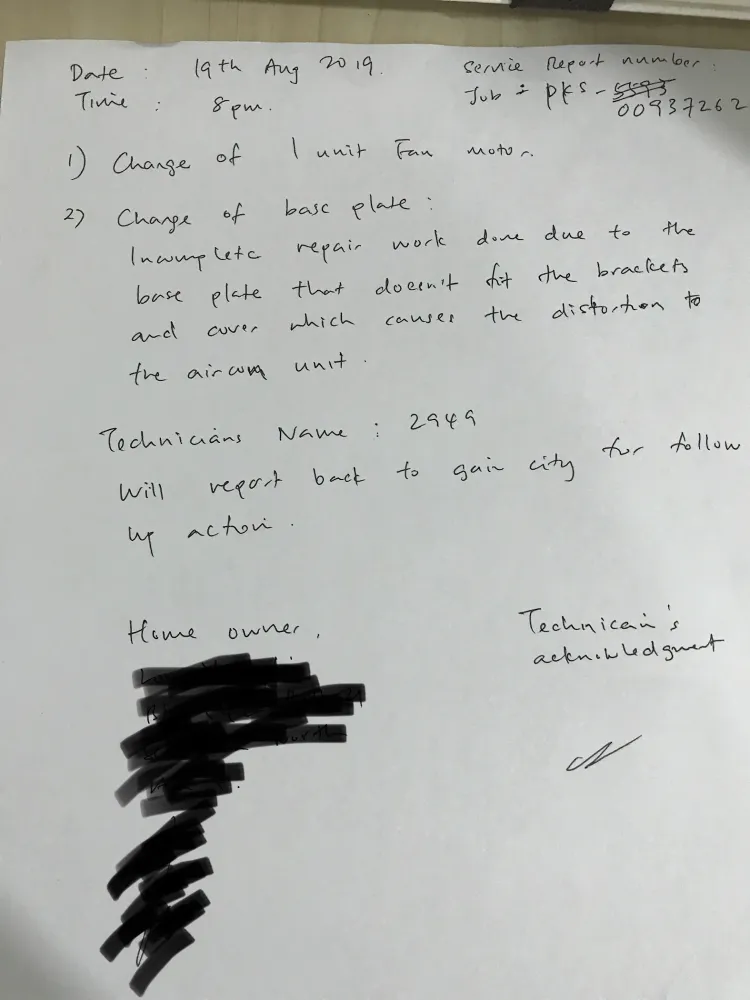 Date : 19th Aug 2019.
Service Report number :
Time : 8pm.
Job : PKS - 5593
00937262
1) Change of 1 unit Fan motor.
2) Change of base plate :
Incomplete repair work done due to the
base plate that doesn't fit the brackets
and cover which causes the distortion to
the aircon unit.
Technicians Name : 2949
Will report back to gain city for follow
up action.
Home owner,
Technicain's
acknowledgment